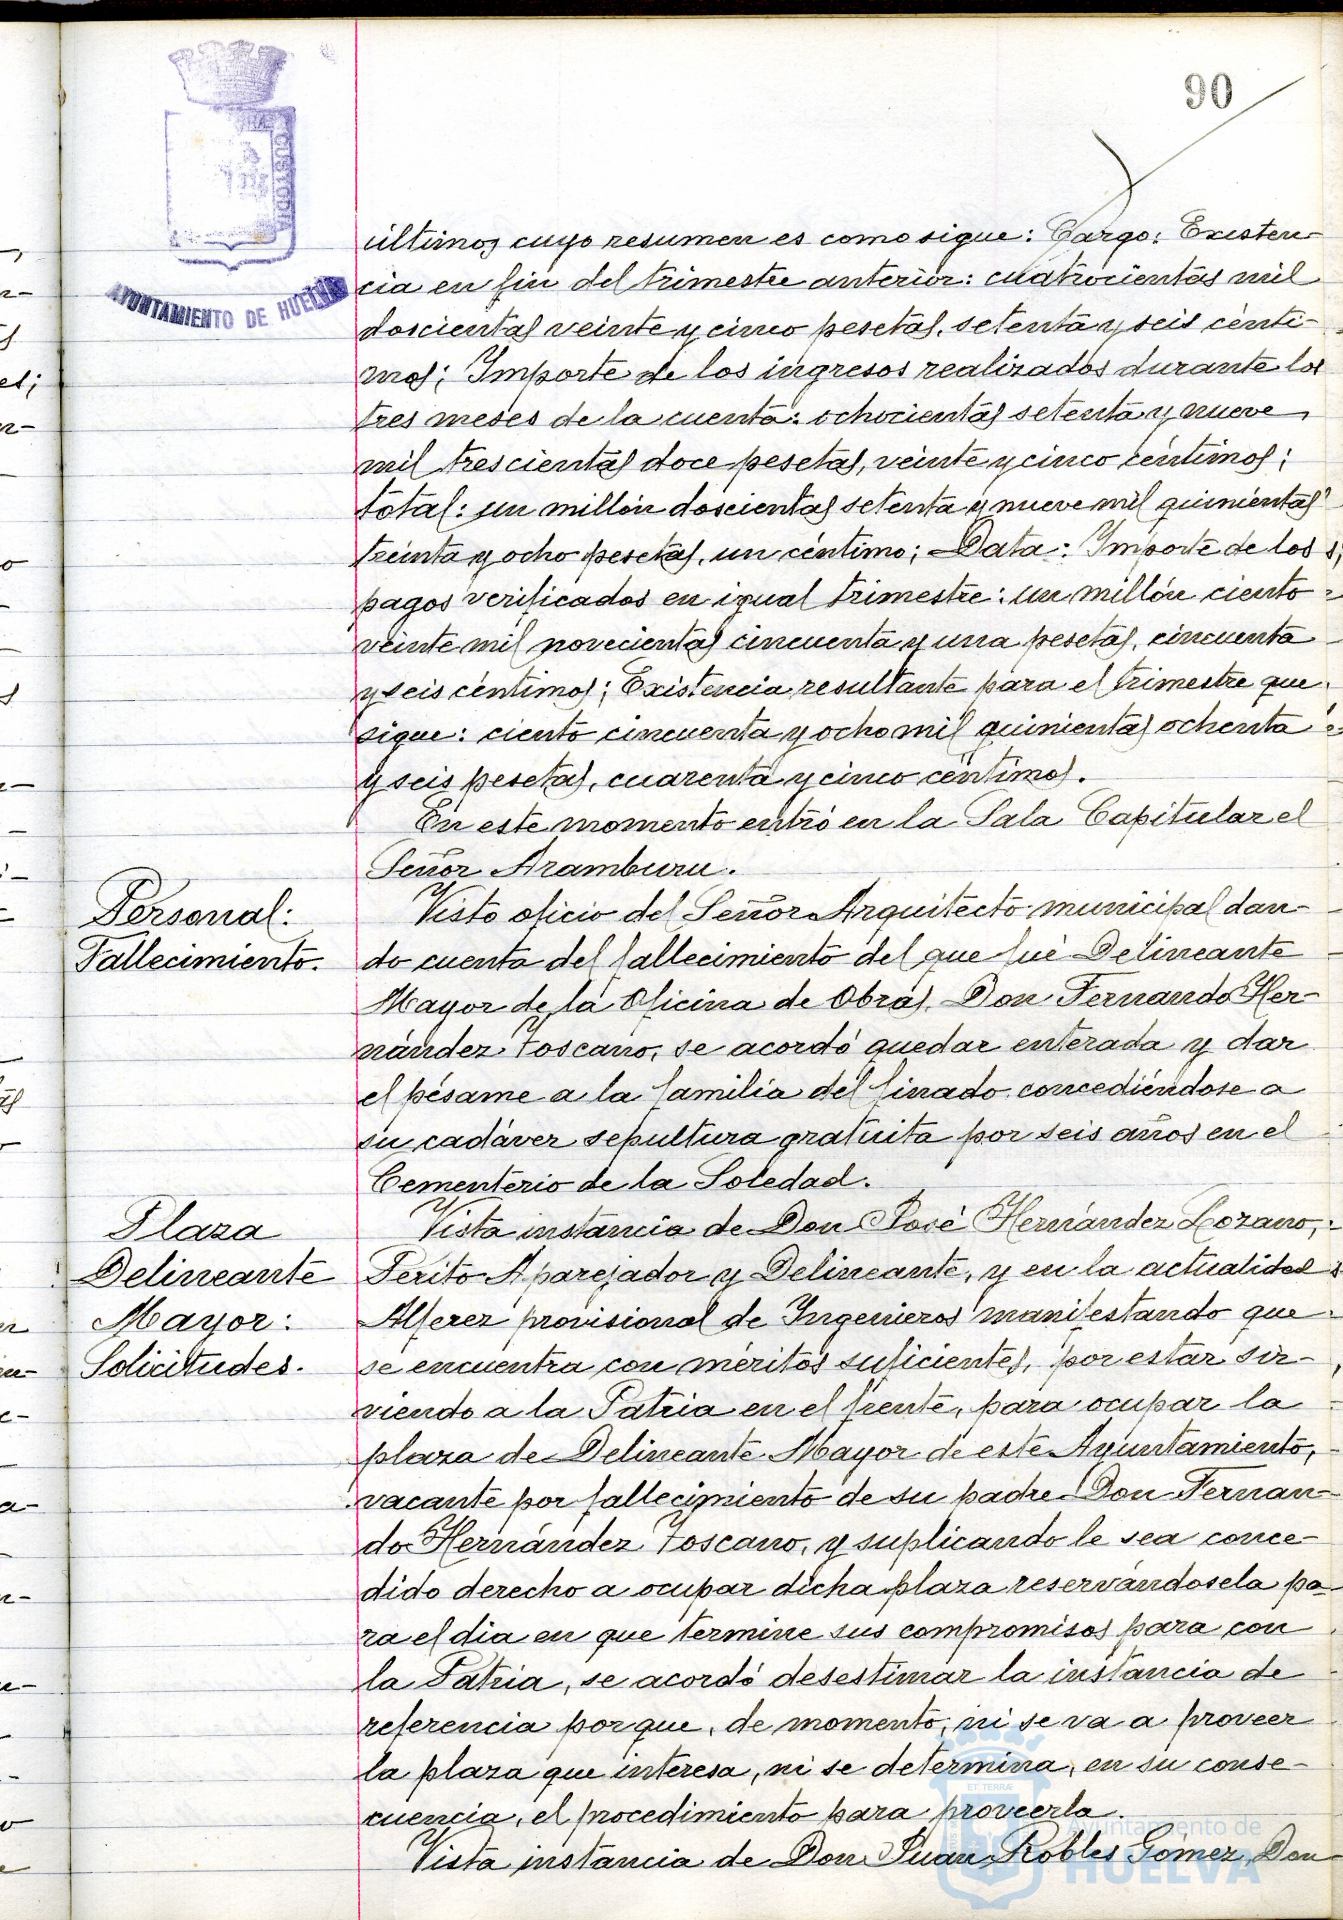 90
AYUNTAMIENTO DE HUELVA
CUSTODIA
último, cuyo resumen es como sigue: Cargo: Existen-
cia en fin del trimestre anterior: cuatrocientas mil
doscientas veinte y cinco pesetas, setenta y seis cénti-
mos; Importe de los ingresos realizados durante los
tres meses de la cuenta: ochocientas setenta y nueve
mil trescientas doce pesetas, veinte y cinco céntimos;
total: un millón doscientas setenta y nueve mil quinientas
treinta y ocho pesetas, un céntimo; Data: Importe de los
pagos verificados en igual trimestre: un millón ciento
veinte mil novecientas cincuenta y una pesetas, cincuenta
y seis céntimos; Existencia resultante para el trimestre que
sigue: ciento cincuenta y ocho mil quinientas ochenta
y seis pesetas, cuarenta y cinco céntimos.
En este momento entró en la Sala Capitular el
Señor Aramburu.
Personal:
Fallecimiento.
Visto oficio del Señor Arquitecto municipal dan-
do cuenta del fallecimiento del que fué Delineante
Mayor de la Oficina de Obras, Don Fernando Her-
nández Toscano, se acordó quedar enterada y dar
el pésame a la familia del finado concediéndose a
su cadáver sepultura gratuita por seis años en el
Cementerio de la Soledad.
Plaza
Delineante
Mayor:
Solicitudes.
Vista instancia de Don José Hernández Lozano,
Perito Aparejador y Delineante, y en la actualidad
Alferez provisional de Ingenieros manifestando que
se encuentra con méritos suficientes, por estar sir-
viendo a la Patria en el frente, para ocupar la
plaza de Delineante Mayor de este Ayuntamiento,
vacante por fallecimiento de su padre Don Fernan-
do Hernández Toscano, y suplicando le sea conce-
dido derecho a ocupar dicha plaza reservándosela pa-
ra el dia en que termine sus compromisos para con
la Patria, se acordó desestimar la instancia de
referencia porque, de momento, ni se va a proveer
la plaza que interesa, ni se determina, en su conse-
cuencia, el procedimiento para proveerla.
Vista instancia de Don Juan Robles Gómez, Don
ET TERRÆ
Ayuntamiento de
HUELVA